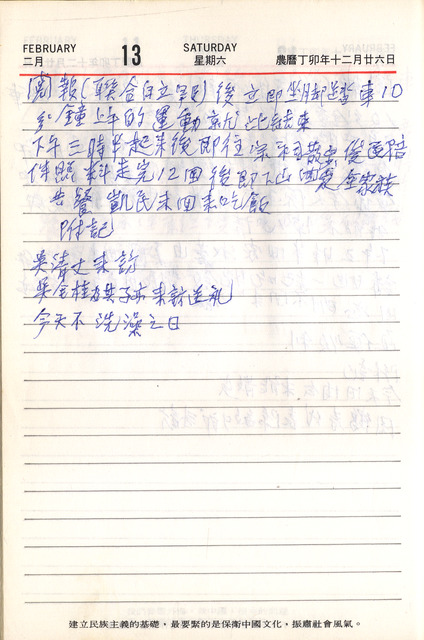 FEBRUARY 13 SATURDAY
二月 星期六 農曆丁卯年十二月廿六日
閱報(聯合自立早)後立即坐脚踏車10
分鐘上午的運動就此結束
下午三時半起床後即往 散步從民陪
伴照料走完12回後即下山回家全家族
共餐 凱民未回來吃飯
附記
吳清丈來訪
吳金桂及其子亦來訪送礼
今天不洗澡之日
建立民族主義的基礎，最要緊的是保衛中國文化，振肅社會風氣。